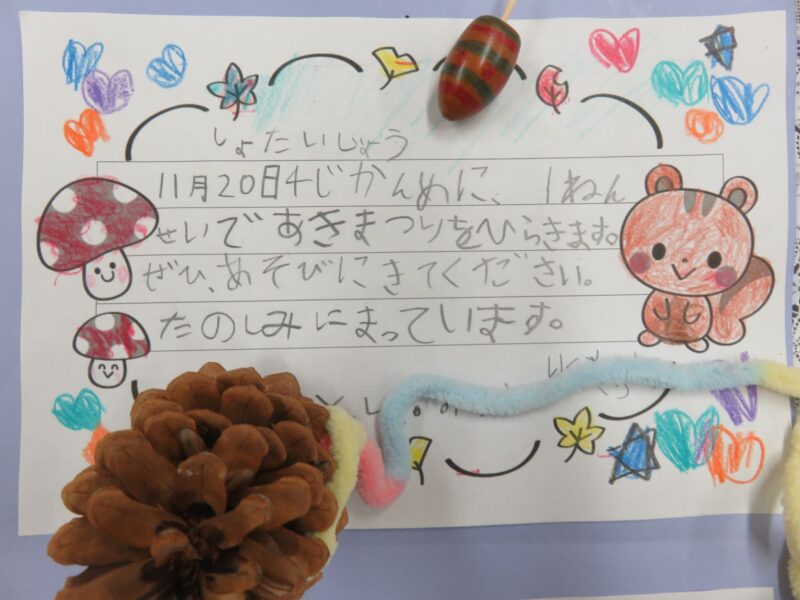 しょたいじょう
11月20日4じかんめに、1ねん
せいであきまつりをひらきます。
ぜひ、あそびにきてください。
たのしみにまっています。